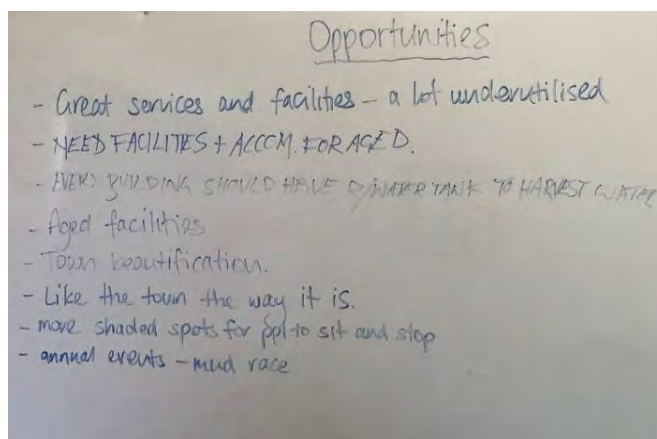 Opportunities
- Great services and facilities - a lot underutilised
- NEED FACILITIES + ACCOM. FOR AGED.
- EVERY BUILDING SHOULD HAVE D/WATER TANK TO HARVEST WATER
- Aged facilities
- Town beautification.
- Like the town the way it is.
- more shaded spots for ppl to sit and stop
- annual events - mud race